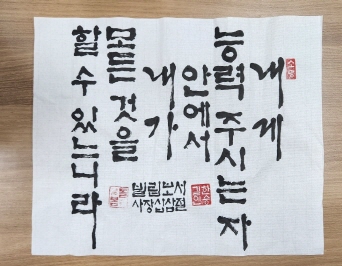 내게
능력 주시는 자
안에서
내가
모든 것을
할 수 있느니라
빌립보서
사장십삼절